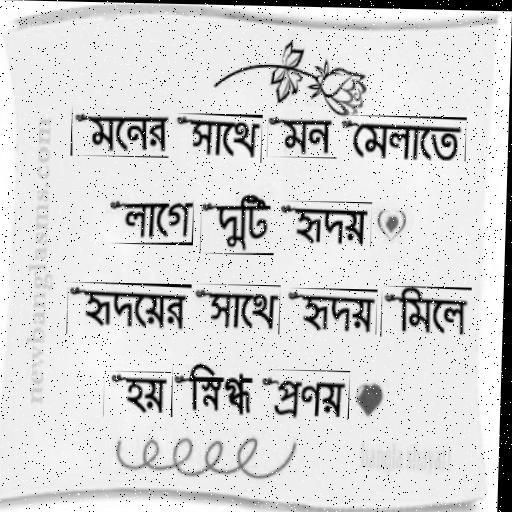 মনের সাথে মন মেলাতে
লাগে দুটি হৃদয়
হৃদয়ের সাথে হৃদয় মিলে
হয় স্নিগ্ধ প্রণয়
newbanglasms.com